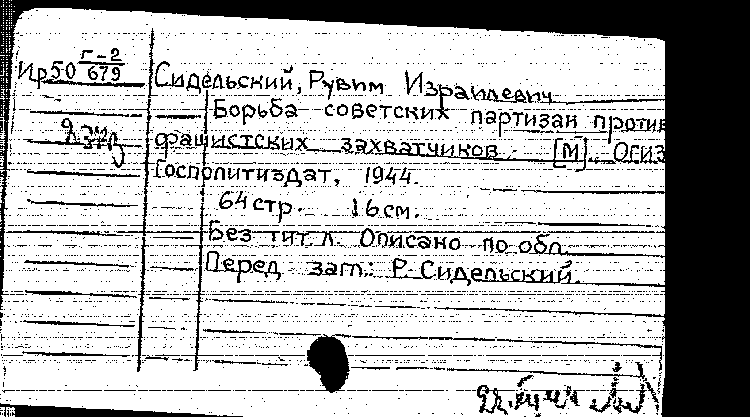 Ир50 Г-2/679
Сидельский, Рувим Израилевич
Борьба советских партизан против
фашистских захватчиков. [М]., ОГИЗ
Госполитиздат, 1944.
64 стр. 16 см.
Без тит. л. Описано по обл.
Перед загл.: Р. Сидельский.